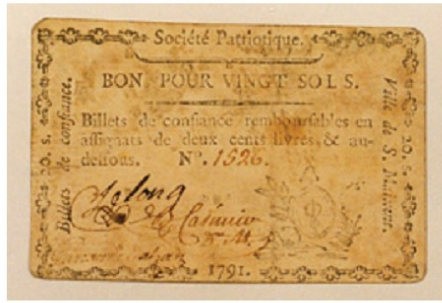 Société Patriotique.
BON POUR VINGT SOLS.
Billets de confiance remboursables en
assignats de deux cents livres & au-
dessous. N°. 1526.
1791.
Billets de confiance.
20. S.
Ville de S.
20. S.